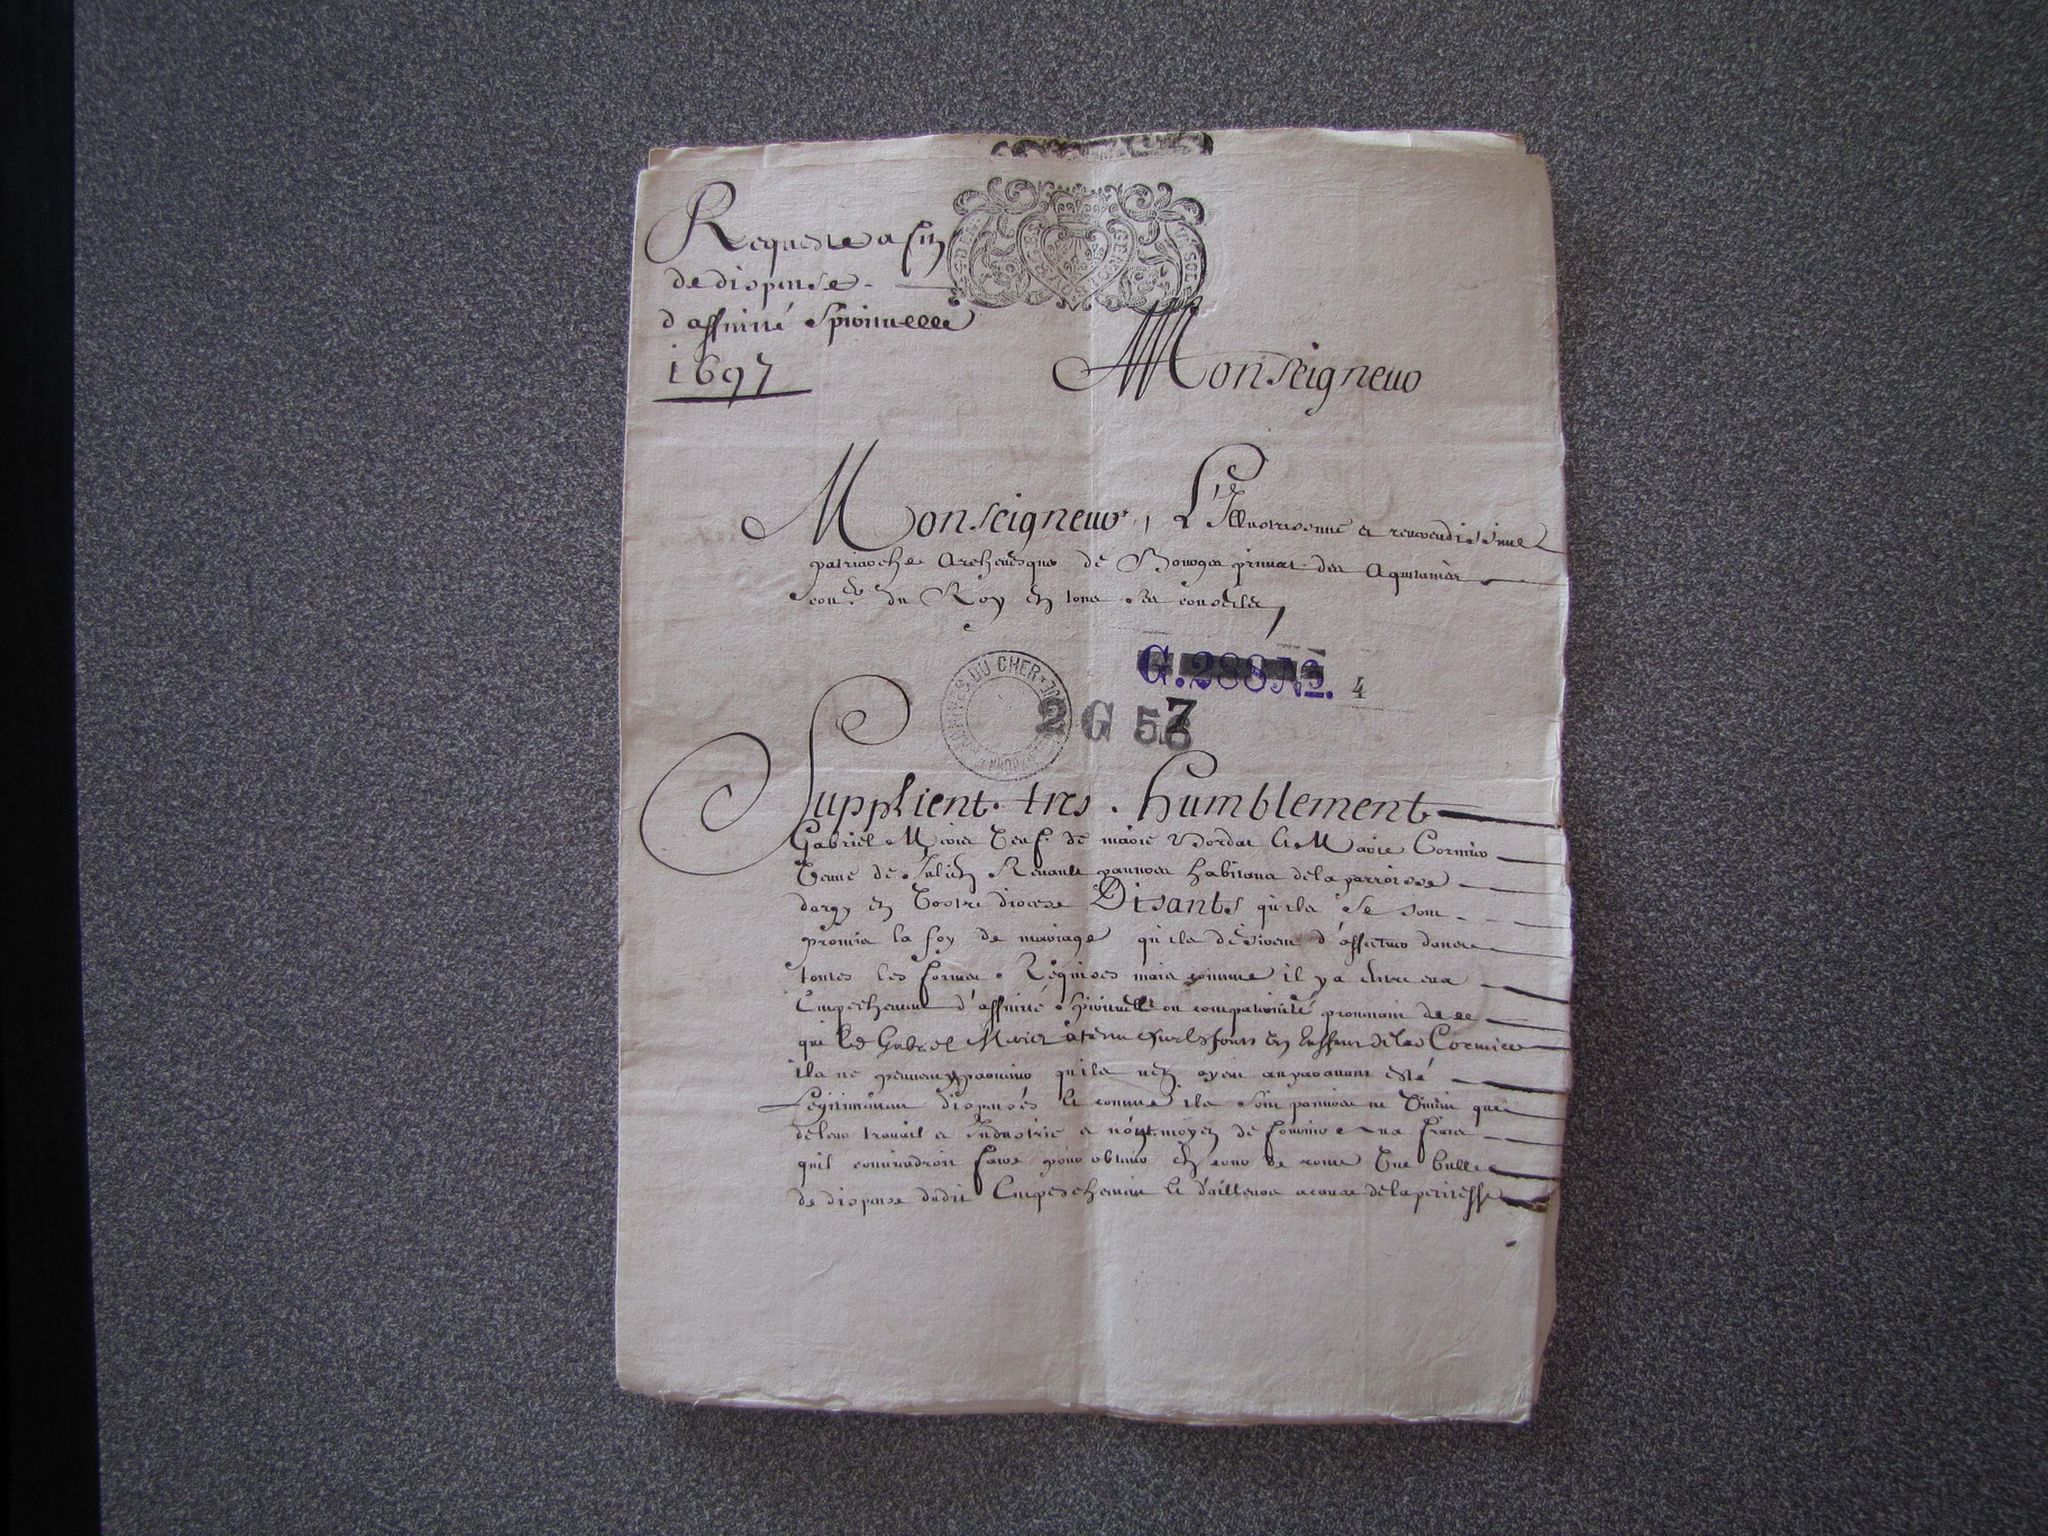 Requeste a fin
de dispense
d'affinité Spirituelle
1697
Monseigneur
Monseigneur, L'Illustrissime et reverendissime
patriarche Archevesque de Bourges primat des Aquitaines
coner du Roy en tous ses conseils,
G. 288 No. 4
ARCHIVES DU CHER
2 G 57
Supplient tres humblement
Gabriel Meriet veuf de marie Bordat & Marie Cormier
veuve de Julien Renault pauvres habitans de la parroisse
dargy en vostre diocese Disants qu'ils se sont
promis la foy de mariage qu'ils desirent d'effectuer dans
toutes les formes Requises mais comme il y a entre eux
Empeschement d'affinité spirituelle ou compaternité provenant de ce
que led Gabriel Meriet a tenu sur les fonts un enfant de lad Cormier
ils ne peuvent parvenir qu'ils n'en ayent auparavant esté
Legitimement dispensés & comme ils sont pauvres ne vivent que
de leur travail et Industrie et n'ont moyen de fournir aux frais
quil conviendroit faire pour obtenir en cour de rome une bulle
de dispense dudit Empeschement & d'ailleurs a cause de la petitesse